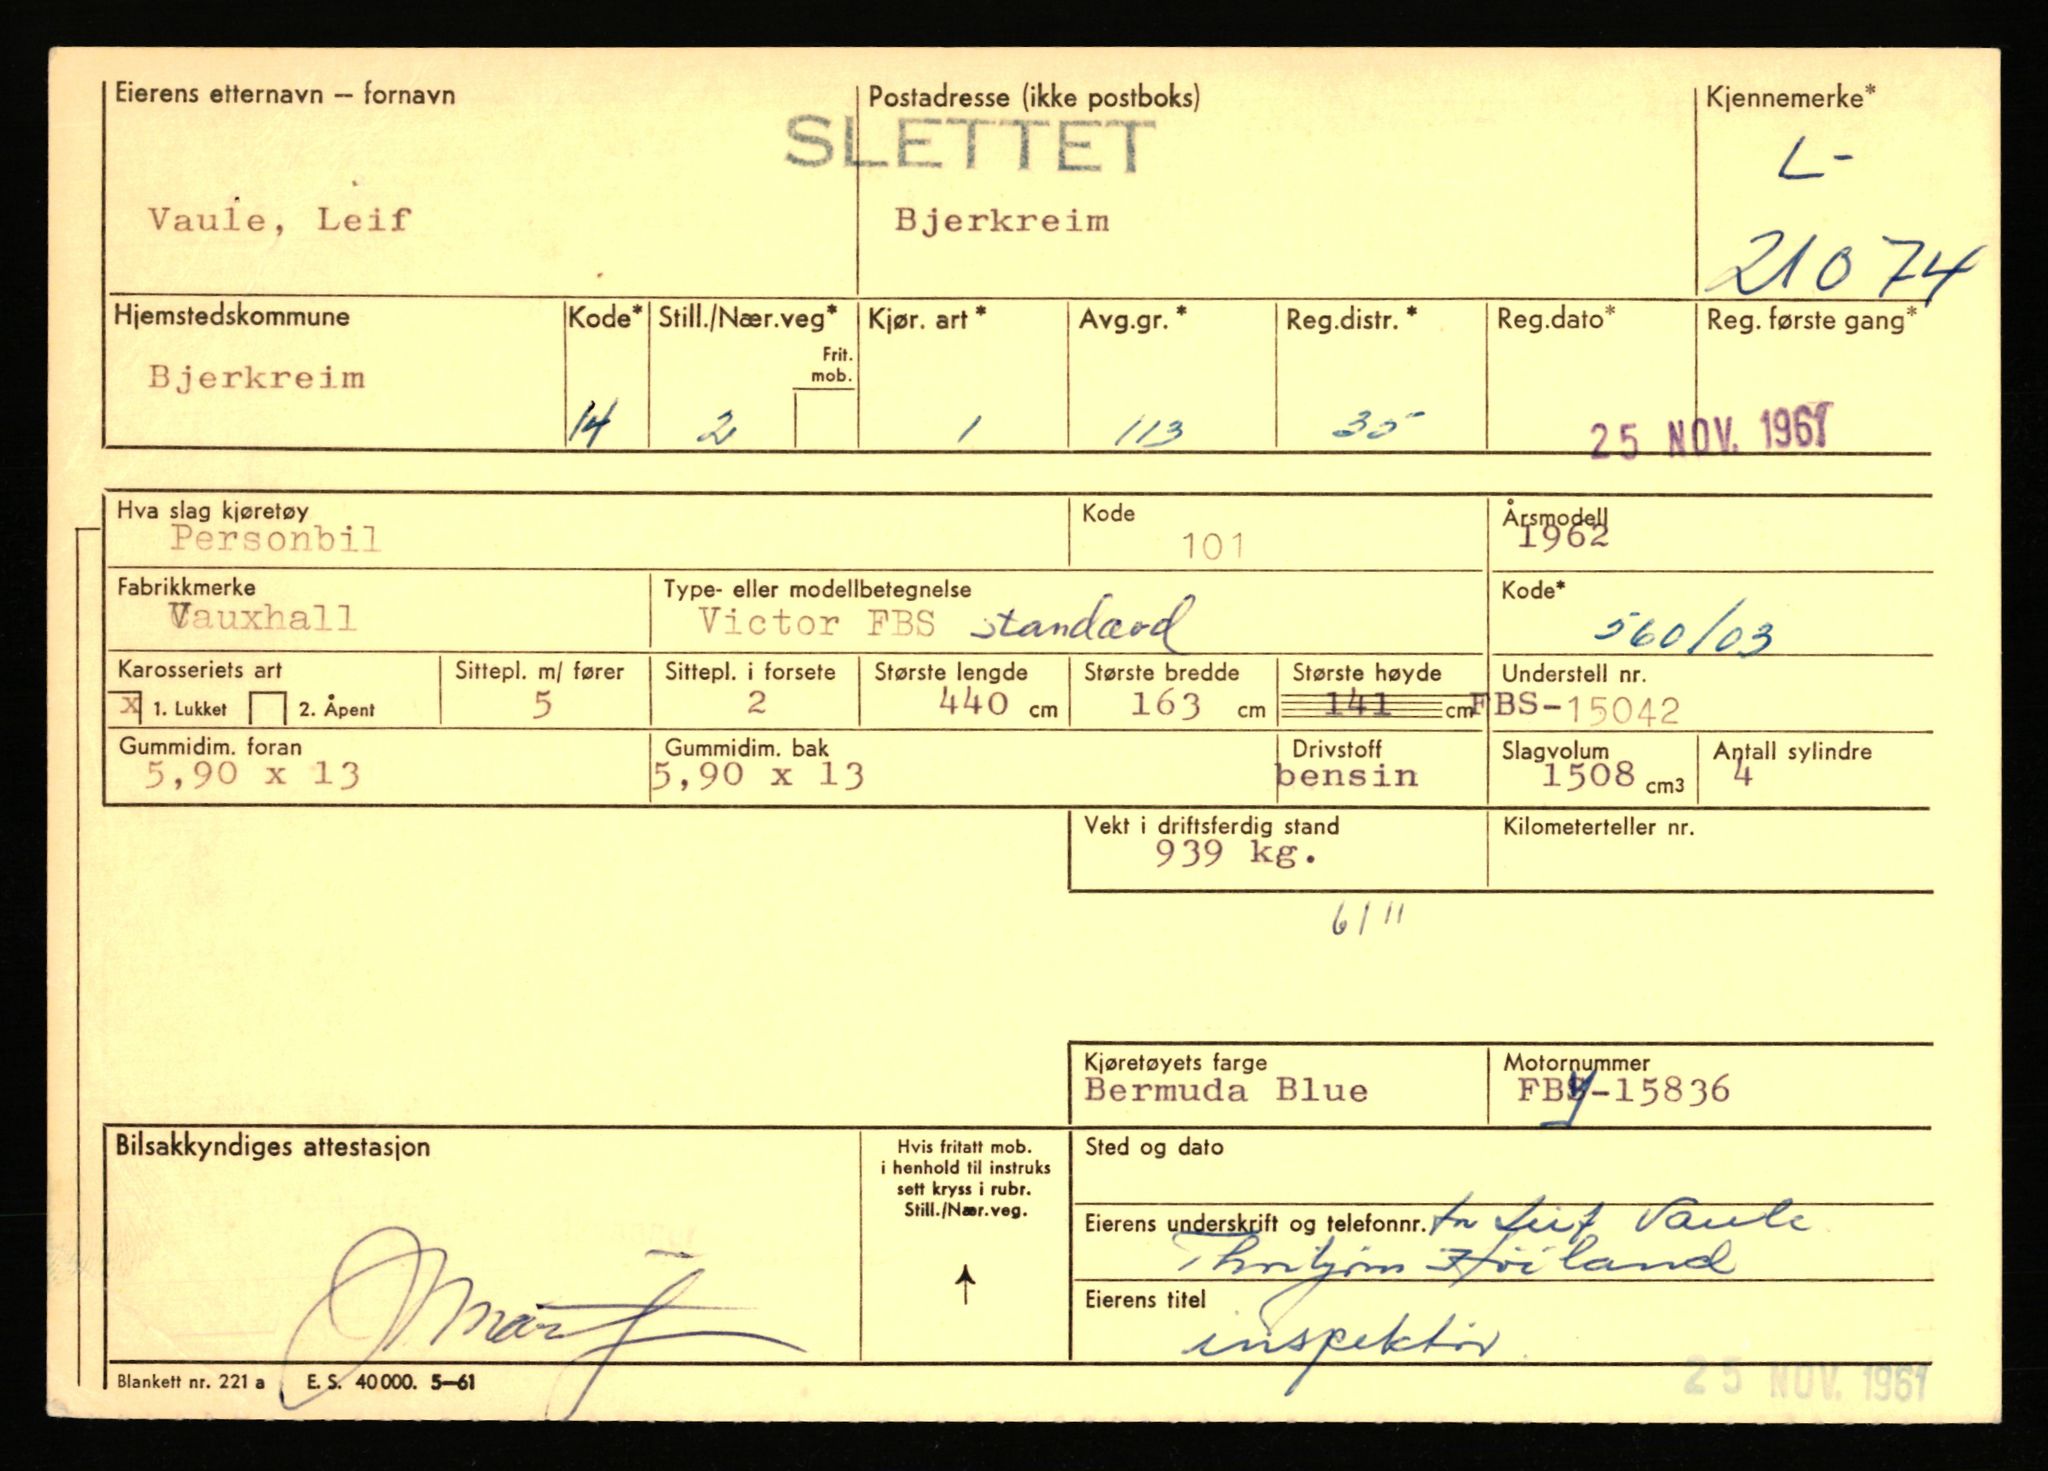 Eierens etternavn – fornavn
Postadresse (ikke postboks)
Kjennemerke*
SLETTET
L-
Vaule, Leif
Bjerkreim
21074
Hjemstedskommune
Kode*
Still./Nær.veg*
Kjør. art *
Avg.gr. *
Reg.distr. *
Reg.dato*
Reg. første gang*
Frit.
mob.
Bjerkreim
14
2
1
113
35
25 NOV. 1961
Hva slag kjøretøy
Kode
Årsmodell
Personbil
101
1962
Fabrikkmerke
Type- eller modellbetegnelse
Kode*
Vauxhall
Victor FBS standard
560/03
Karosseriets art
Sittepl. m/ fører
Sittepl. i forsete
Største lengde
Største bredde
Største høyde
Understell nr.
x 1. Lukket 2. Åpent
5
2
440 cm
163 cm
141 cm
FBS-15042
Gummidim. foran
Gummidim. bak
Drivstoff
Slagvolum
Antall sylindre
5,90 x 13
5,90 x 13
bensin
1508 cm3
4
Vekt i driftsferdig stand
Kilometerteller nr.
939 kg.
61"
Kjøretøyets farge
Motornummer
Bermuda Blue
FBY-15836
Bilsakkyndiges attestasjon
Hvis fritatt mob.
i henhold til instruks
sett kryss i rubr.
Still./Nær.veg.
Sted og dato
Eierens underskrift og telefonnr. for Leif Vaule
Thorbjørn Høiland
Eierens titel
inspektør
Blankett nr. 221 a E. S. 40 000. 5–61
25 NOV. 1961